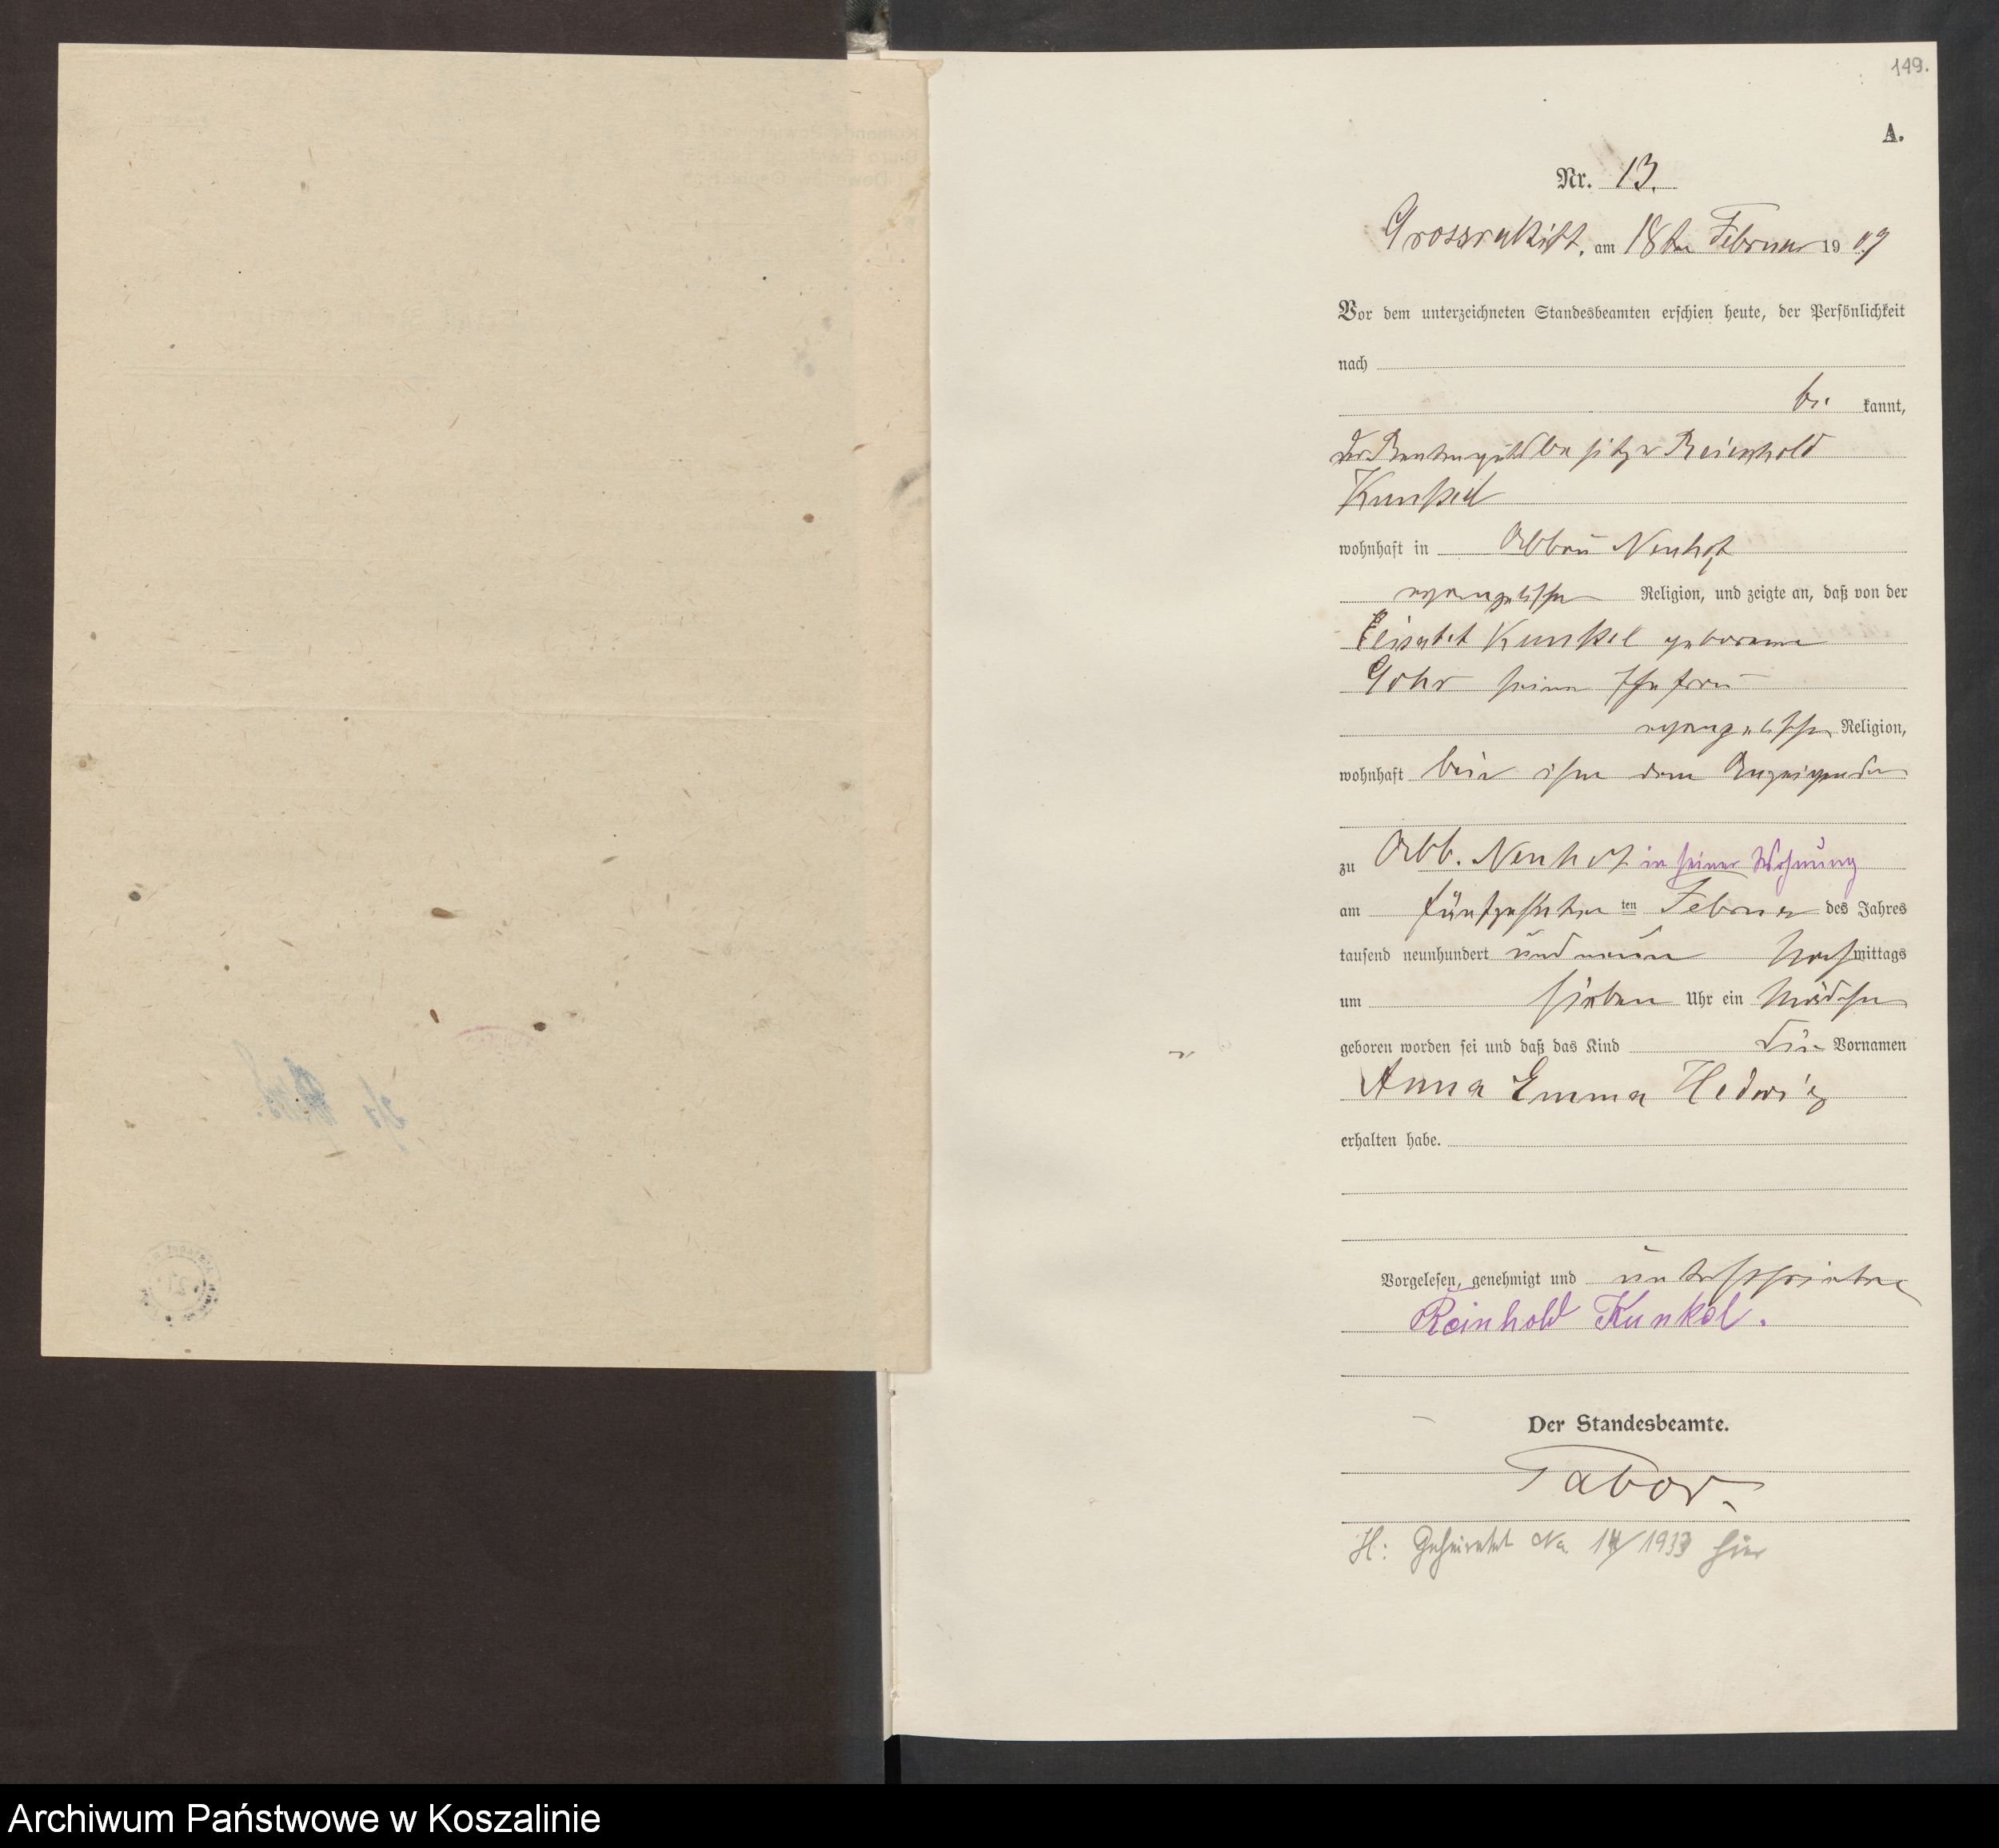 149.
A.
Nr. 13.
Grossrakitt, am 18ten Februar 1909
Vor dem unterzeichneten Standesbeamten erschien heute, der Persönlichkeit
nach
be kannt,
der Rentengutsbesitzer Reinhold
Kunkel
wohnhaft in Abbau Neuhof
evangelischer Religion, und zeigte an, daß von der
Kunkel geborene
Gohr seiner Ehefrau
evangelischer Religion,
wohnhaft bei ihm dem Anzeigenden
zu Abb. Neuhof in seiner Wohnung
am fünfzehnten ten Februar des Jahres
tausend neunhundert und neun Nachmittags
um sieben Uhr ein Mädchen
geboren worden sei und daß das Kind die Vornamen
Anna Emma Hedwig
erhalten habe.
Vorgelesen, genehmigt und unterschrieben
Reinhold Kunkel.
Der Standesbeamte.
Tabor.
H: Geheiratet No 14/1933 hier
Archiwum Państwowe w Koszalinie